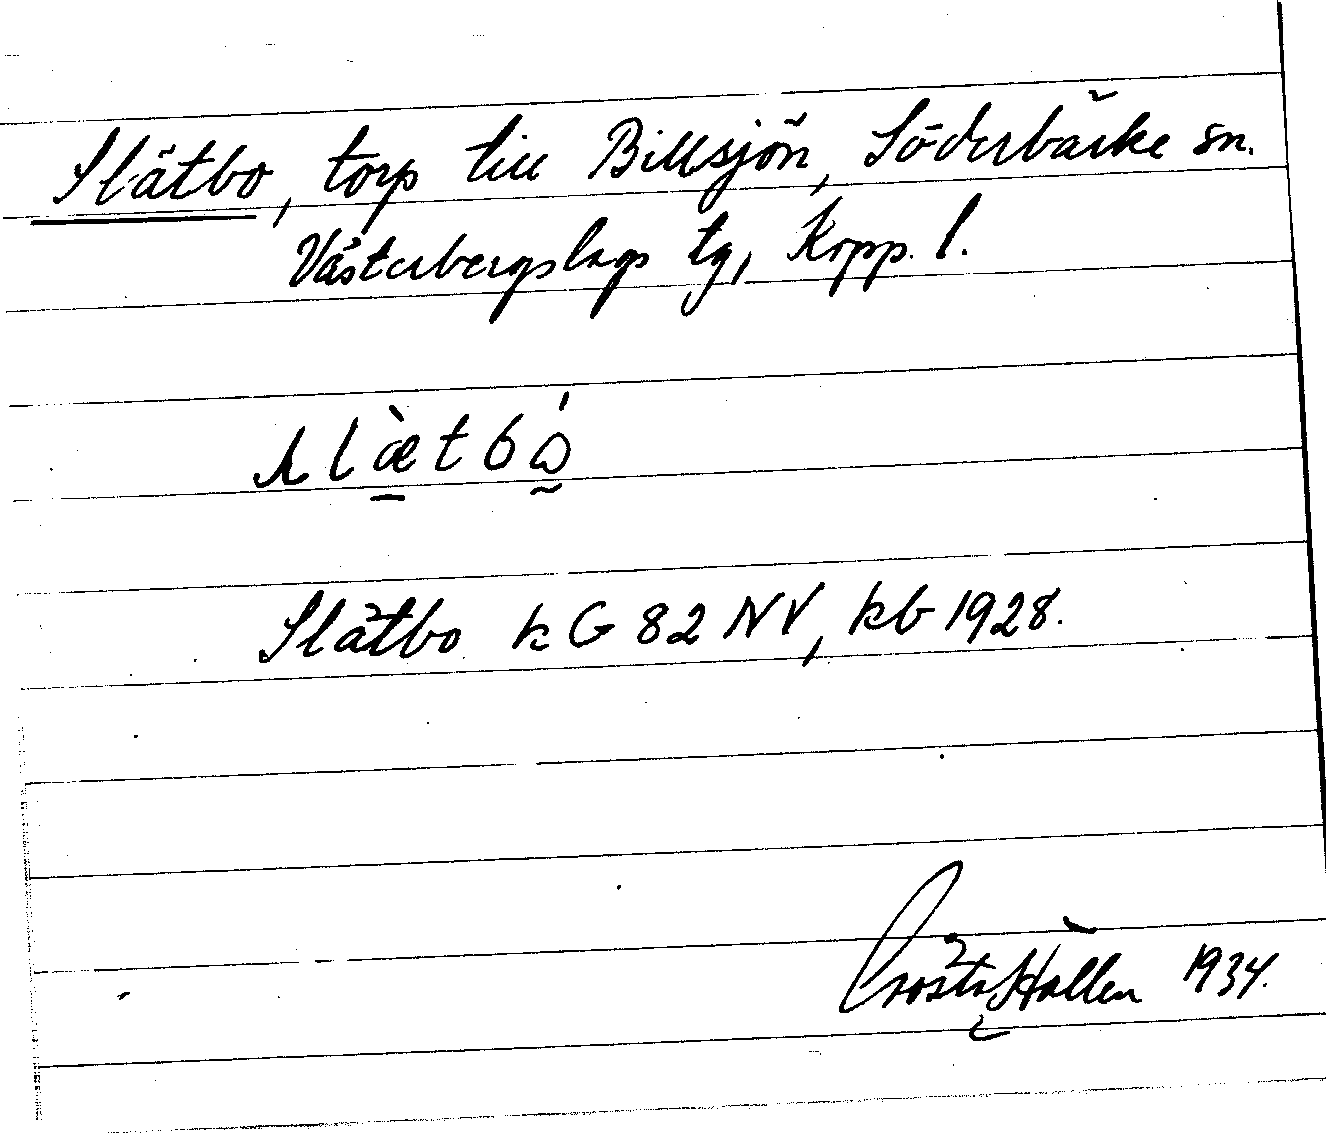 Slätbo, torp till Billsjön, Söderbärke sn.
Västerbergslags tg, Kopp. l.
Slätbo k G 82 NV, kb 1928.
Gösta Hallen 1934.